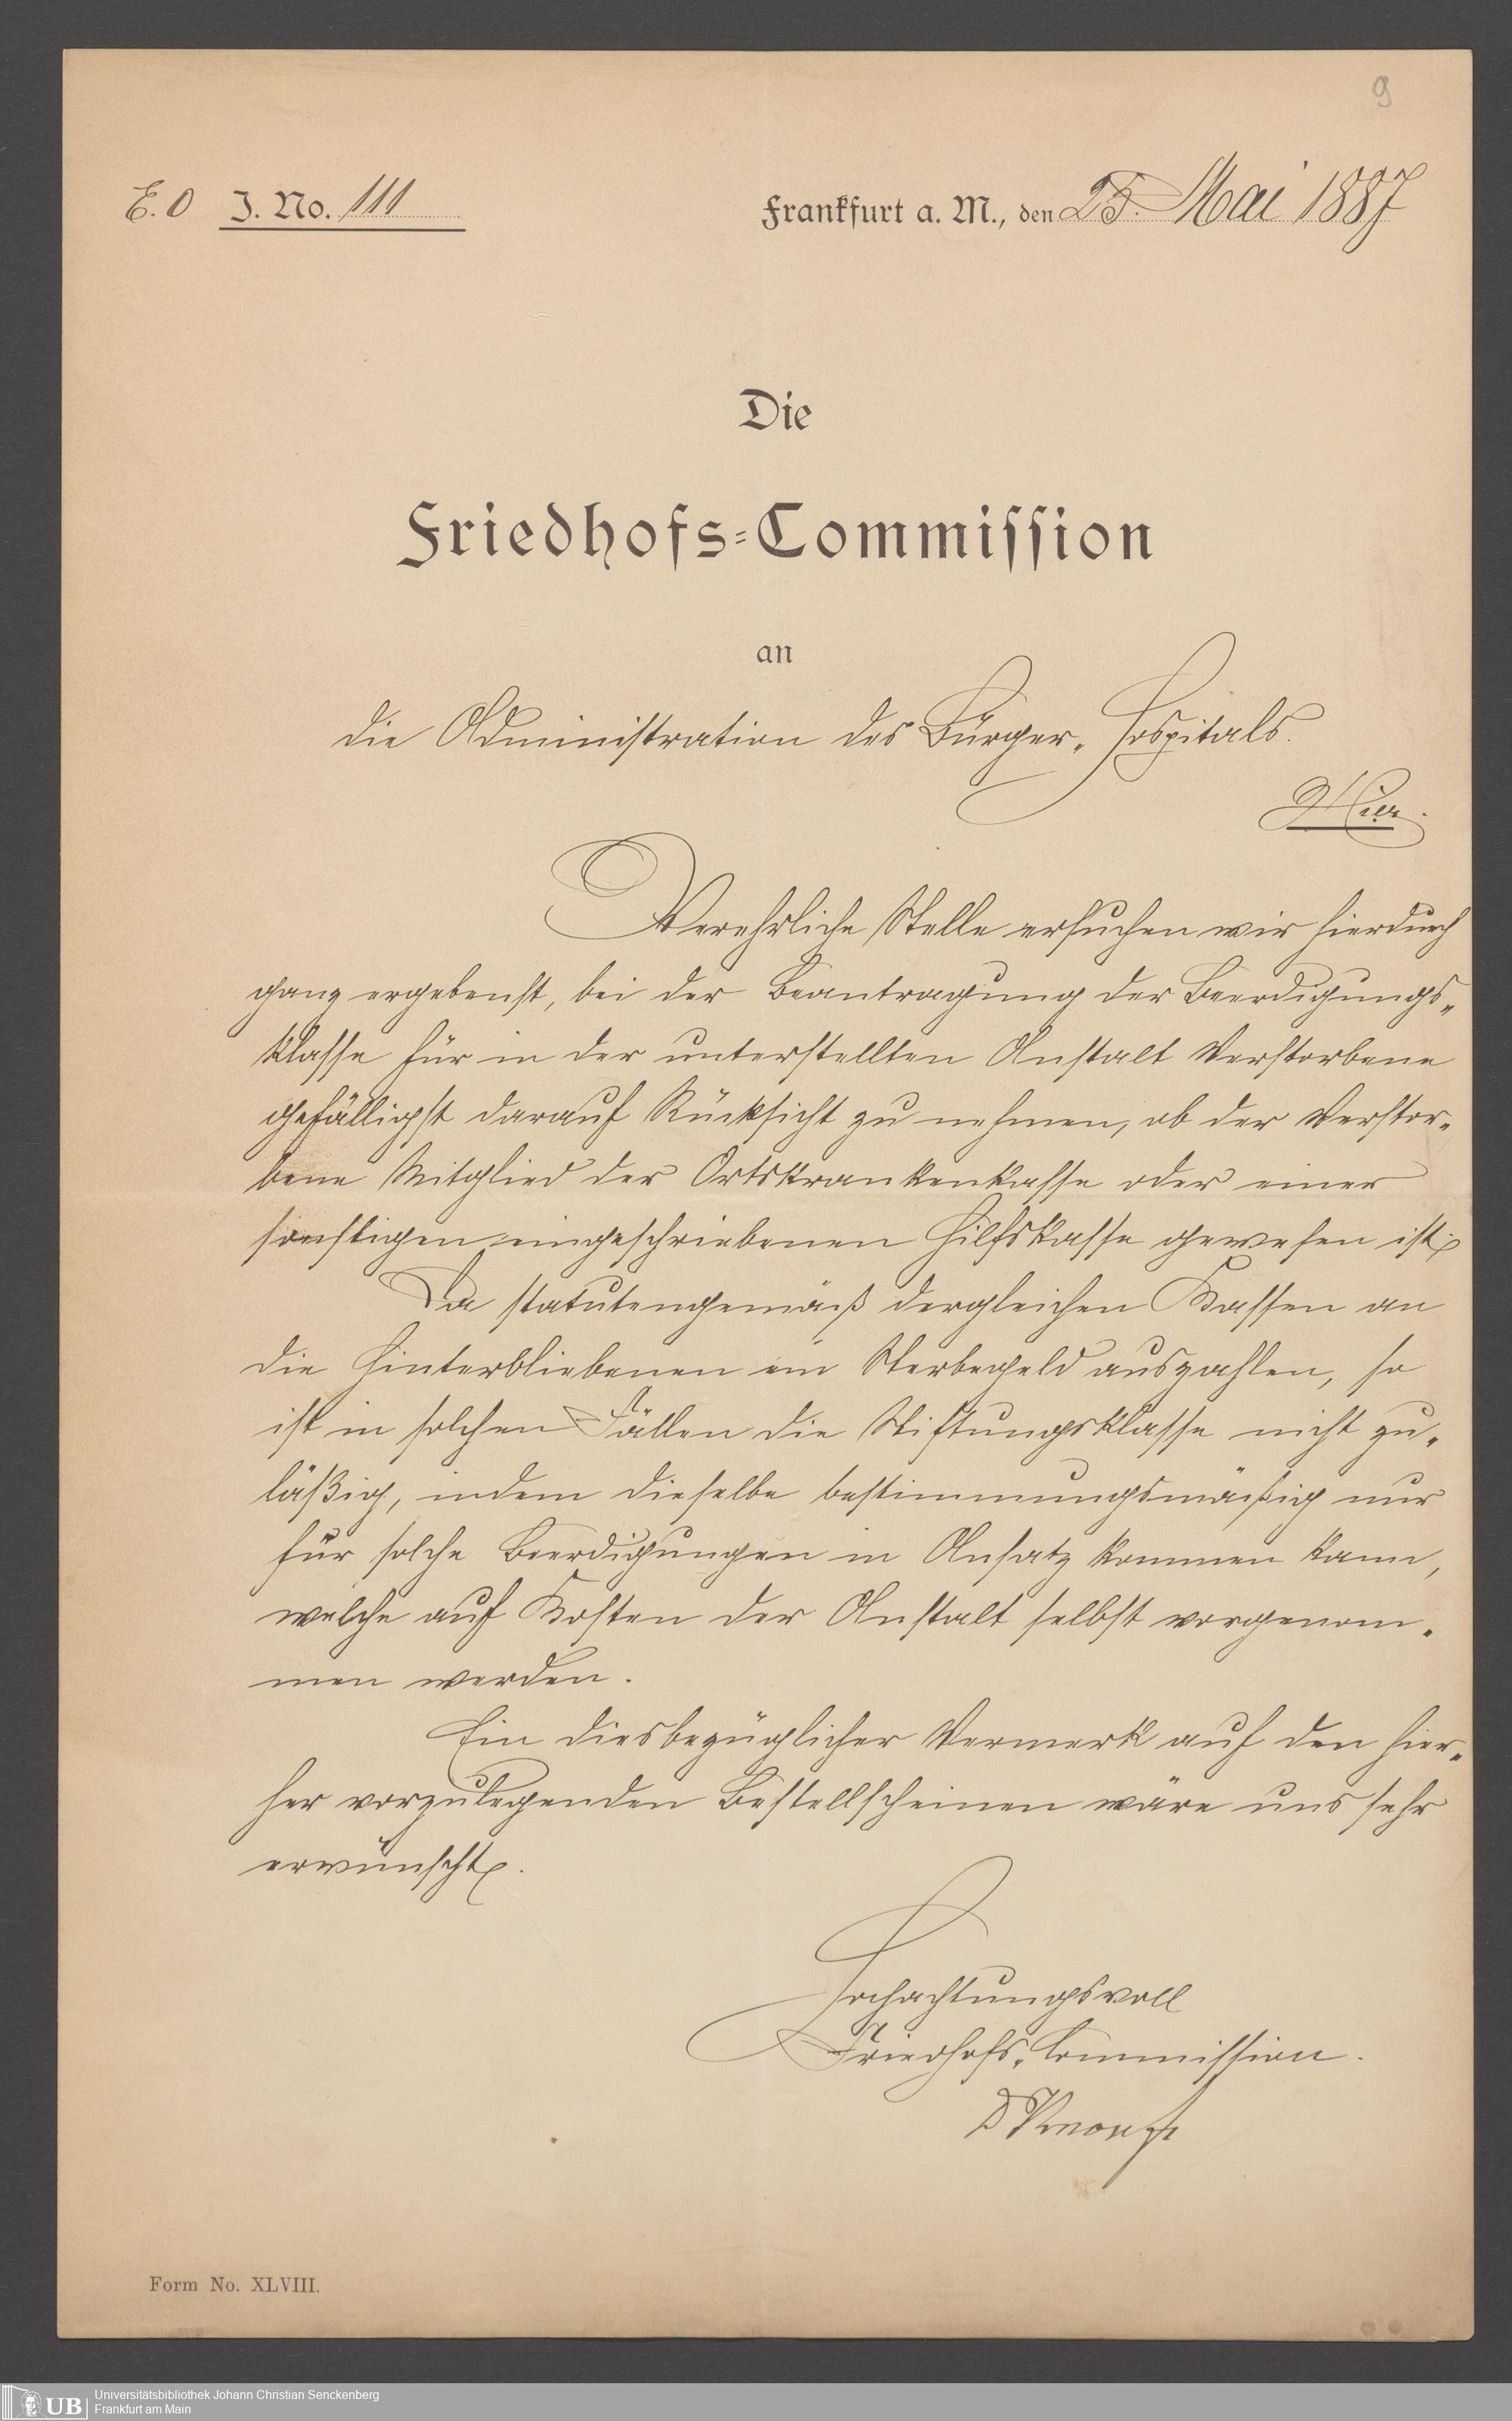 9
E. O J. No. 111
Frankfurt a. M., den 25. Mai 1887
Die
Friedhofs-Commission
an
die Administration des Bürger-Hospitals.
Hier.
Verehrliche Stelle ersuchen wir hierdurch
ganz ergebenst, bei der Beantragung der Beerdigungs-
klasse für in der unterstellten Anstalt Verstorbene
gefälligst darauf Rücksicht zu nehmen, ob der Verstor-
bene Mitglied der Ortskrankenkasse oder einer
sonstigen eingeschriebenen Hilfskasse gewesen ist.
Da statutengemäß dergleichen Kassen an
die Hinterbliebenen ein Sterbegeld auszahlen, so
ist in solchen Fällen die Stiftungsklasse nicht zu-
läßig, indem dieselbe bestimmungsmäßig nur
für solche Beerdigungen in Ansatz kommen kann,
welche auf Kosten der Anstalt selbst vorgenom-
men werden.
Ein diesbezüglicher Vermerk auf den hier-
her vorzulegenden Bestellscheinen wäre uns sehr
erwünscht.
Hochachtungsvoll
Friedhofs-Commission.
Form No. XLVIII.
UB
Universitätsbibliothek Johann Christian Senckenberg
Frankfurt am Main